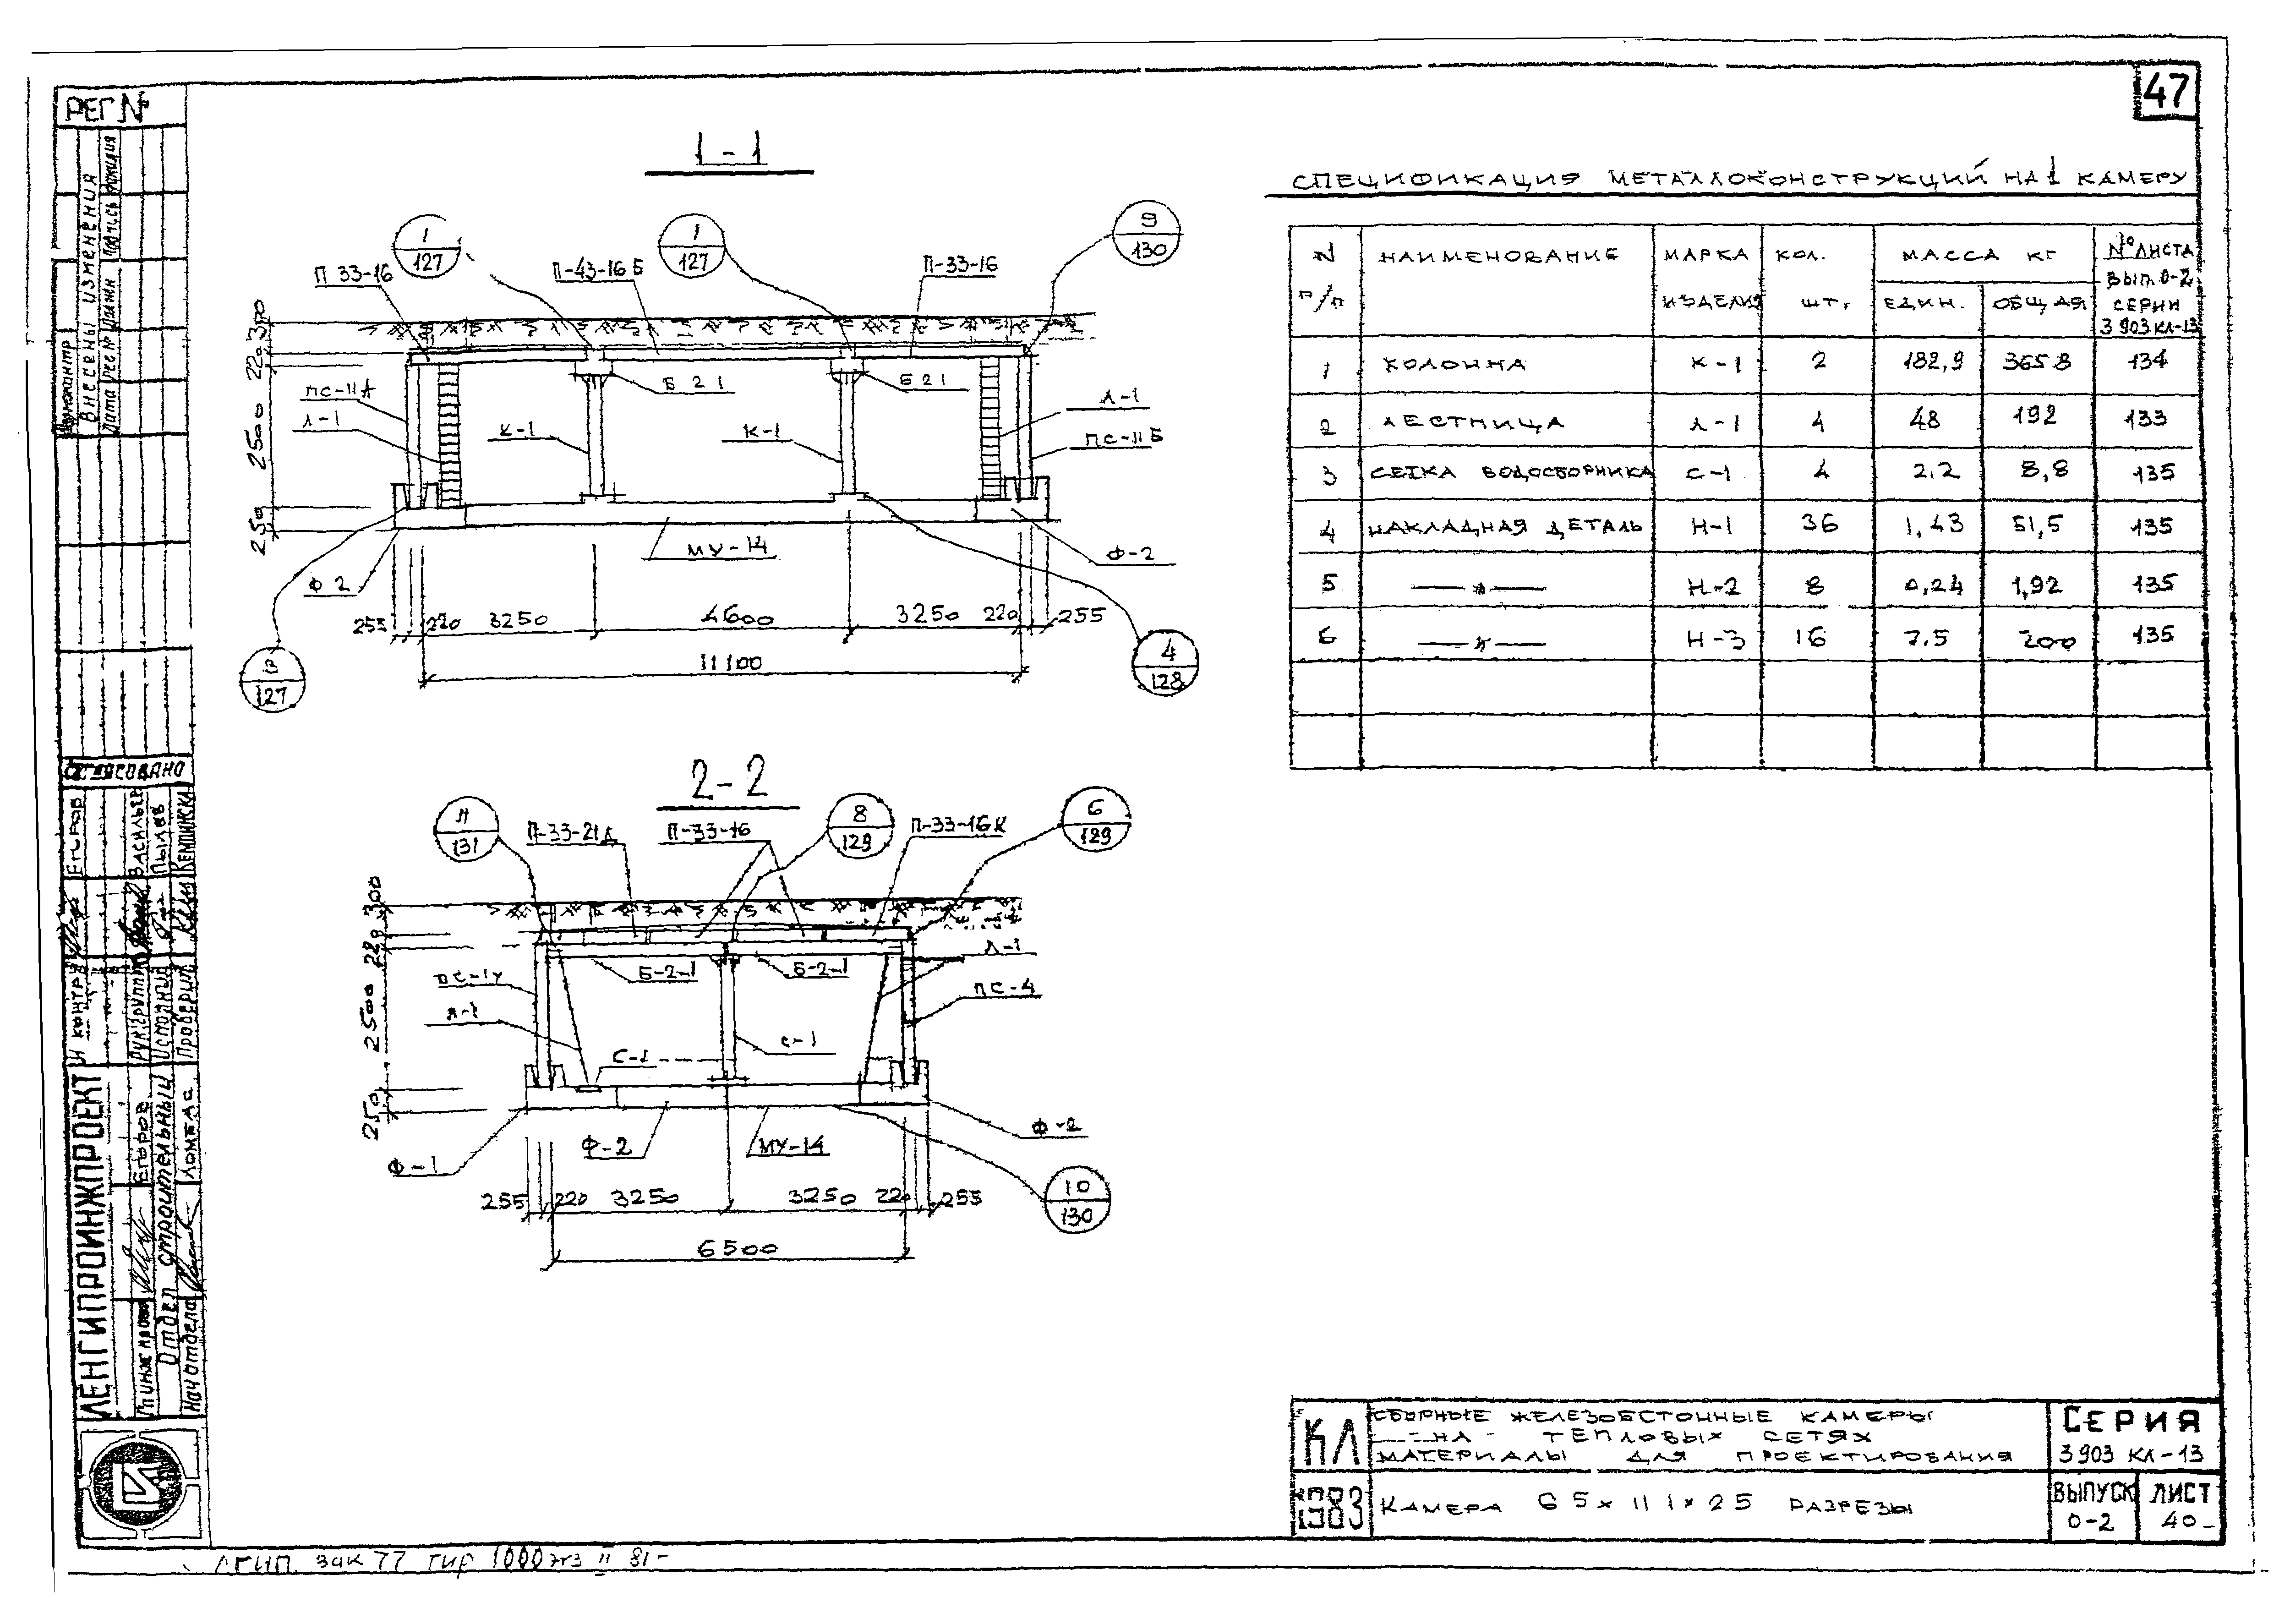 47
РЕГ №
1-1
СПЕЦИФИКАЦИЯ МЕТАЛЛОКОНСТРУКЦИЙ НА 1 КАМЕРУ
N п/п НАИМЕНОВАНИЕ МАРКА ИЗДЕЛИЯ КОЛ. ШТ. МАССА КГ ЕДИН. ОБЩАЯ № ЛИСТА ВЫП. 0-2 СЕРИИ 3 903 КЛ-13
1 КОЛОННА К-1 2 182,9 365 8 134
2 ЛЕСТНИЦА Л-1 4 48 192 133
3 СЕТКА ВОДОСБОРНИКА С-1 4 2.2 8,8 135
4 НАКЛАДНАЯ ДЕТАЛЬ Н-1 36 1,43 51,5 135
5 —"— Н-2 8 0,24 1,92 135
6 —"— Н-3 16 7.5 200 135
1
127
1
127
9
130
П 33-16
П-43-16 Б
П-33-16
300
220
2500
250
ПС-11А
Л-1
К-1
Б 2 1
К-1
Б 2 1
Л-1
ПС-11 Б
МУ-14
Ф-2
Ф 2
255 220 3250 4600 3250 220 255
11100
127
4
128
2-2
11
131
П-33-21 А
П-33-16
8
129
П-33-16 К
6
129
300
220
2500
250
Б-2-1
Б-2-1
Л-1
ПС-4
Л-1
С-1
С-1
Ф-1
Ф-2
МУ-14
Ф-2
10
130
255 220 3250 3250 220 255
6500
ВНЕСЕНЫ ИЗМЕНЕНИЯ
Дата
Подпись
Фамилия
СОГЛАСОВАНО
ЛЕНГИПРОИНЖПРОЕКТ
Отдел строительный
Нач отдела ЛОМЕАС
ЕГОРОВ
Н КОНТР ЕГОРОВ
Рук групп ВАСИЛЬЕВ
Исполнил
Проверил
КЛ
1983
СБОРНЫЕ ЖЕЛЕЗОБЕТОННЫЕ КАМЕРЫ
НА ТЕПЛОВЫХ СЕТЯХ
МАТЕРИАЛЫ ДЛЯ ПРОЕКТИРОВАНИЯ
КАМЕРА 6 5 х 11 1 х 2 5 РАЗРЕЗЫ
СЕРИЯ
3 903 КЛ-13
ВЫПУСК
0-2
ЛИСТ
40
ЛГИП. Зак 77 тир 1000 экз